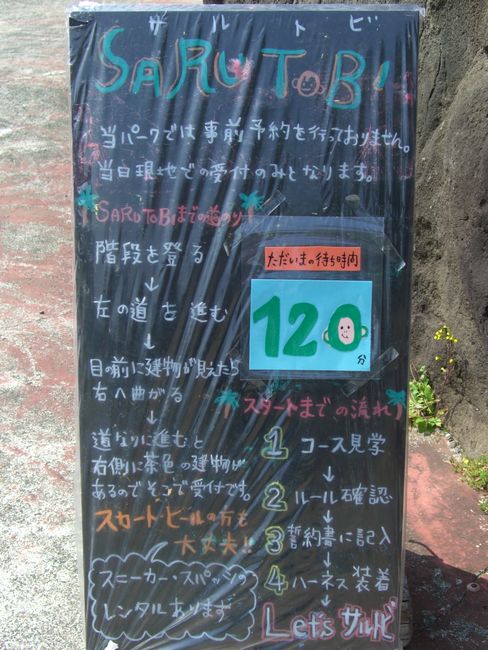 サルトビ
SARUTOBI
当パークでは事前予約を行っておりません。
当日現地での受付のみとなります。
SARUTOBIまでの道のり
階段を登る
↓
左の道を進む
↓
目の前に建物が見えたら
右へ曲がる
↓
道なりに進むと
右側に茶色の建物が
あるのでそこで受付です。
スカート・ヒールの方も
大丈夫!!
スニーカー・スパッツの
レンタルあります
ただいまの待ち時間
120分
スタートまでの流れ
1 コース見学
↓
2 ルール確認
↓
3 誓約書に記入
↓
4 ハーネス装着
↓
Let'sサルトビ